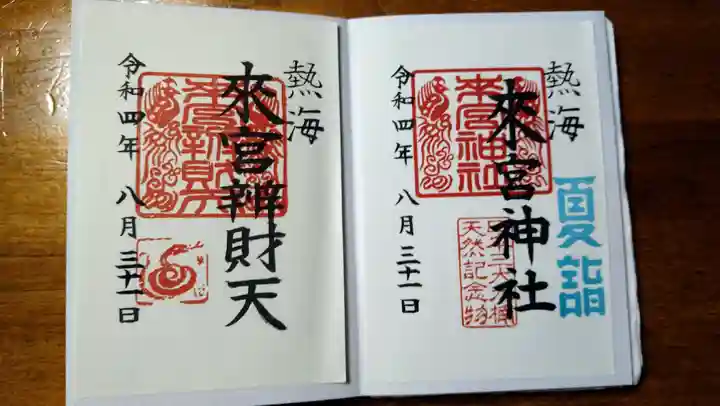 熱海
夏詣
來宮神社
來宮神社
天然記念物
令和四年 八月三十一日
熱海
來宮辨財天
令和四年 八月三十一日